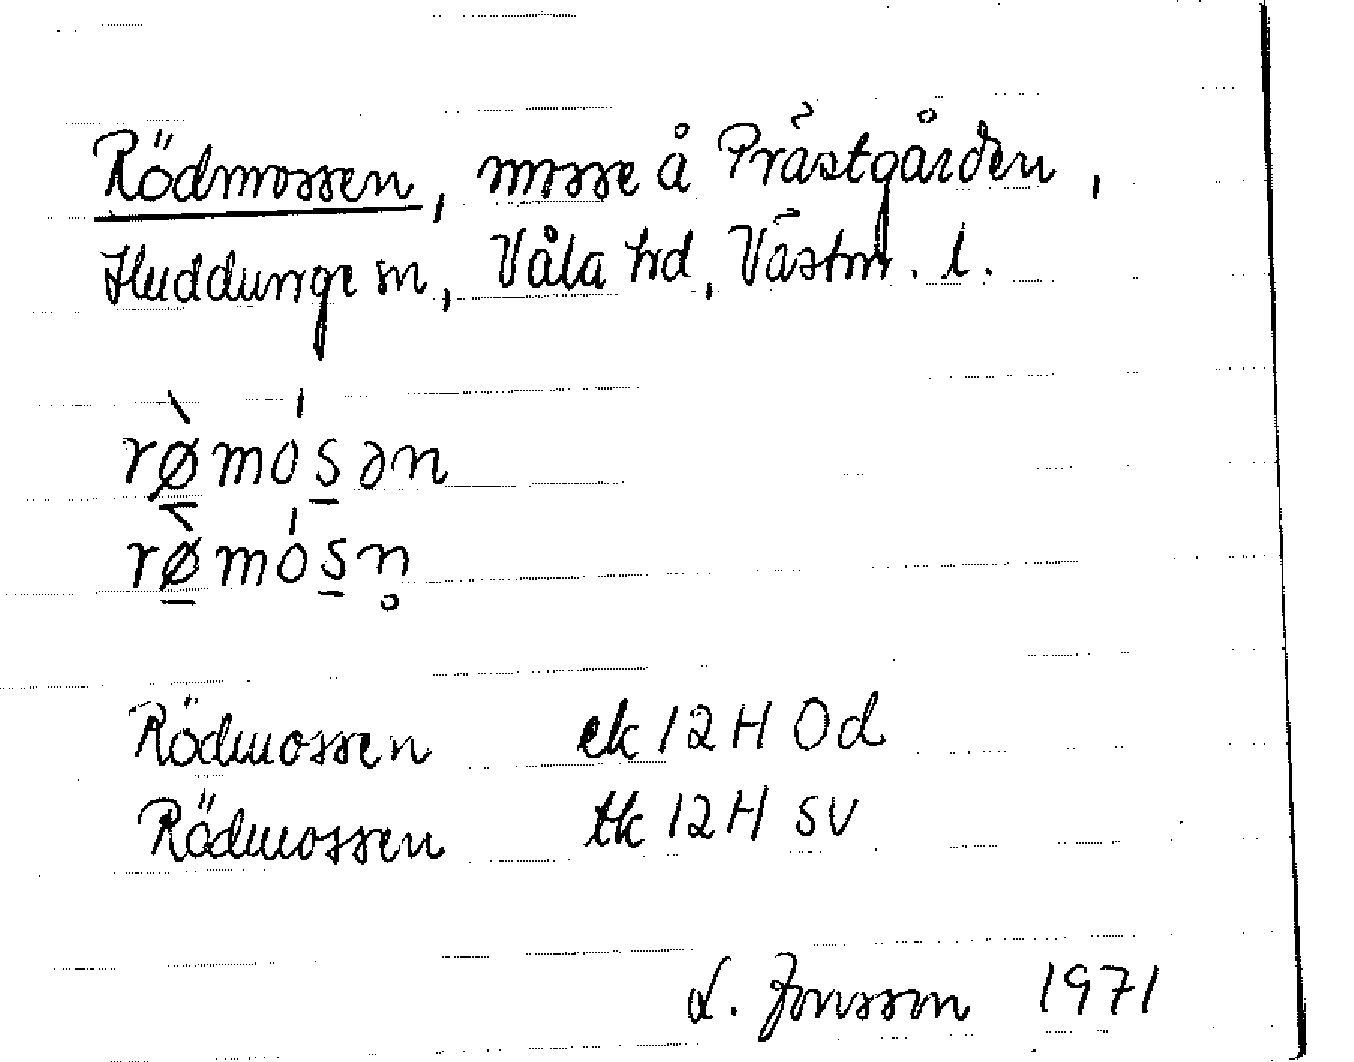 Rödmossen, mosse å Prästgården,
Huddunge sn, Våla hd, Västm. l.
rø̠̀mós̠ən
rø̠̀mós̠n̥
Rödmossen ek 12H 0d
Rödmossen tk 12H SV
L. Jonsson 1971